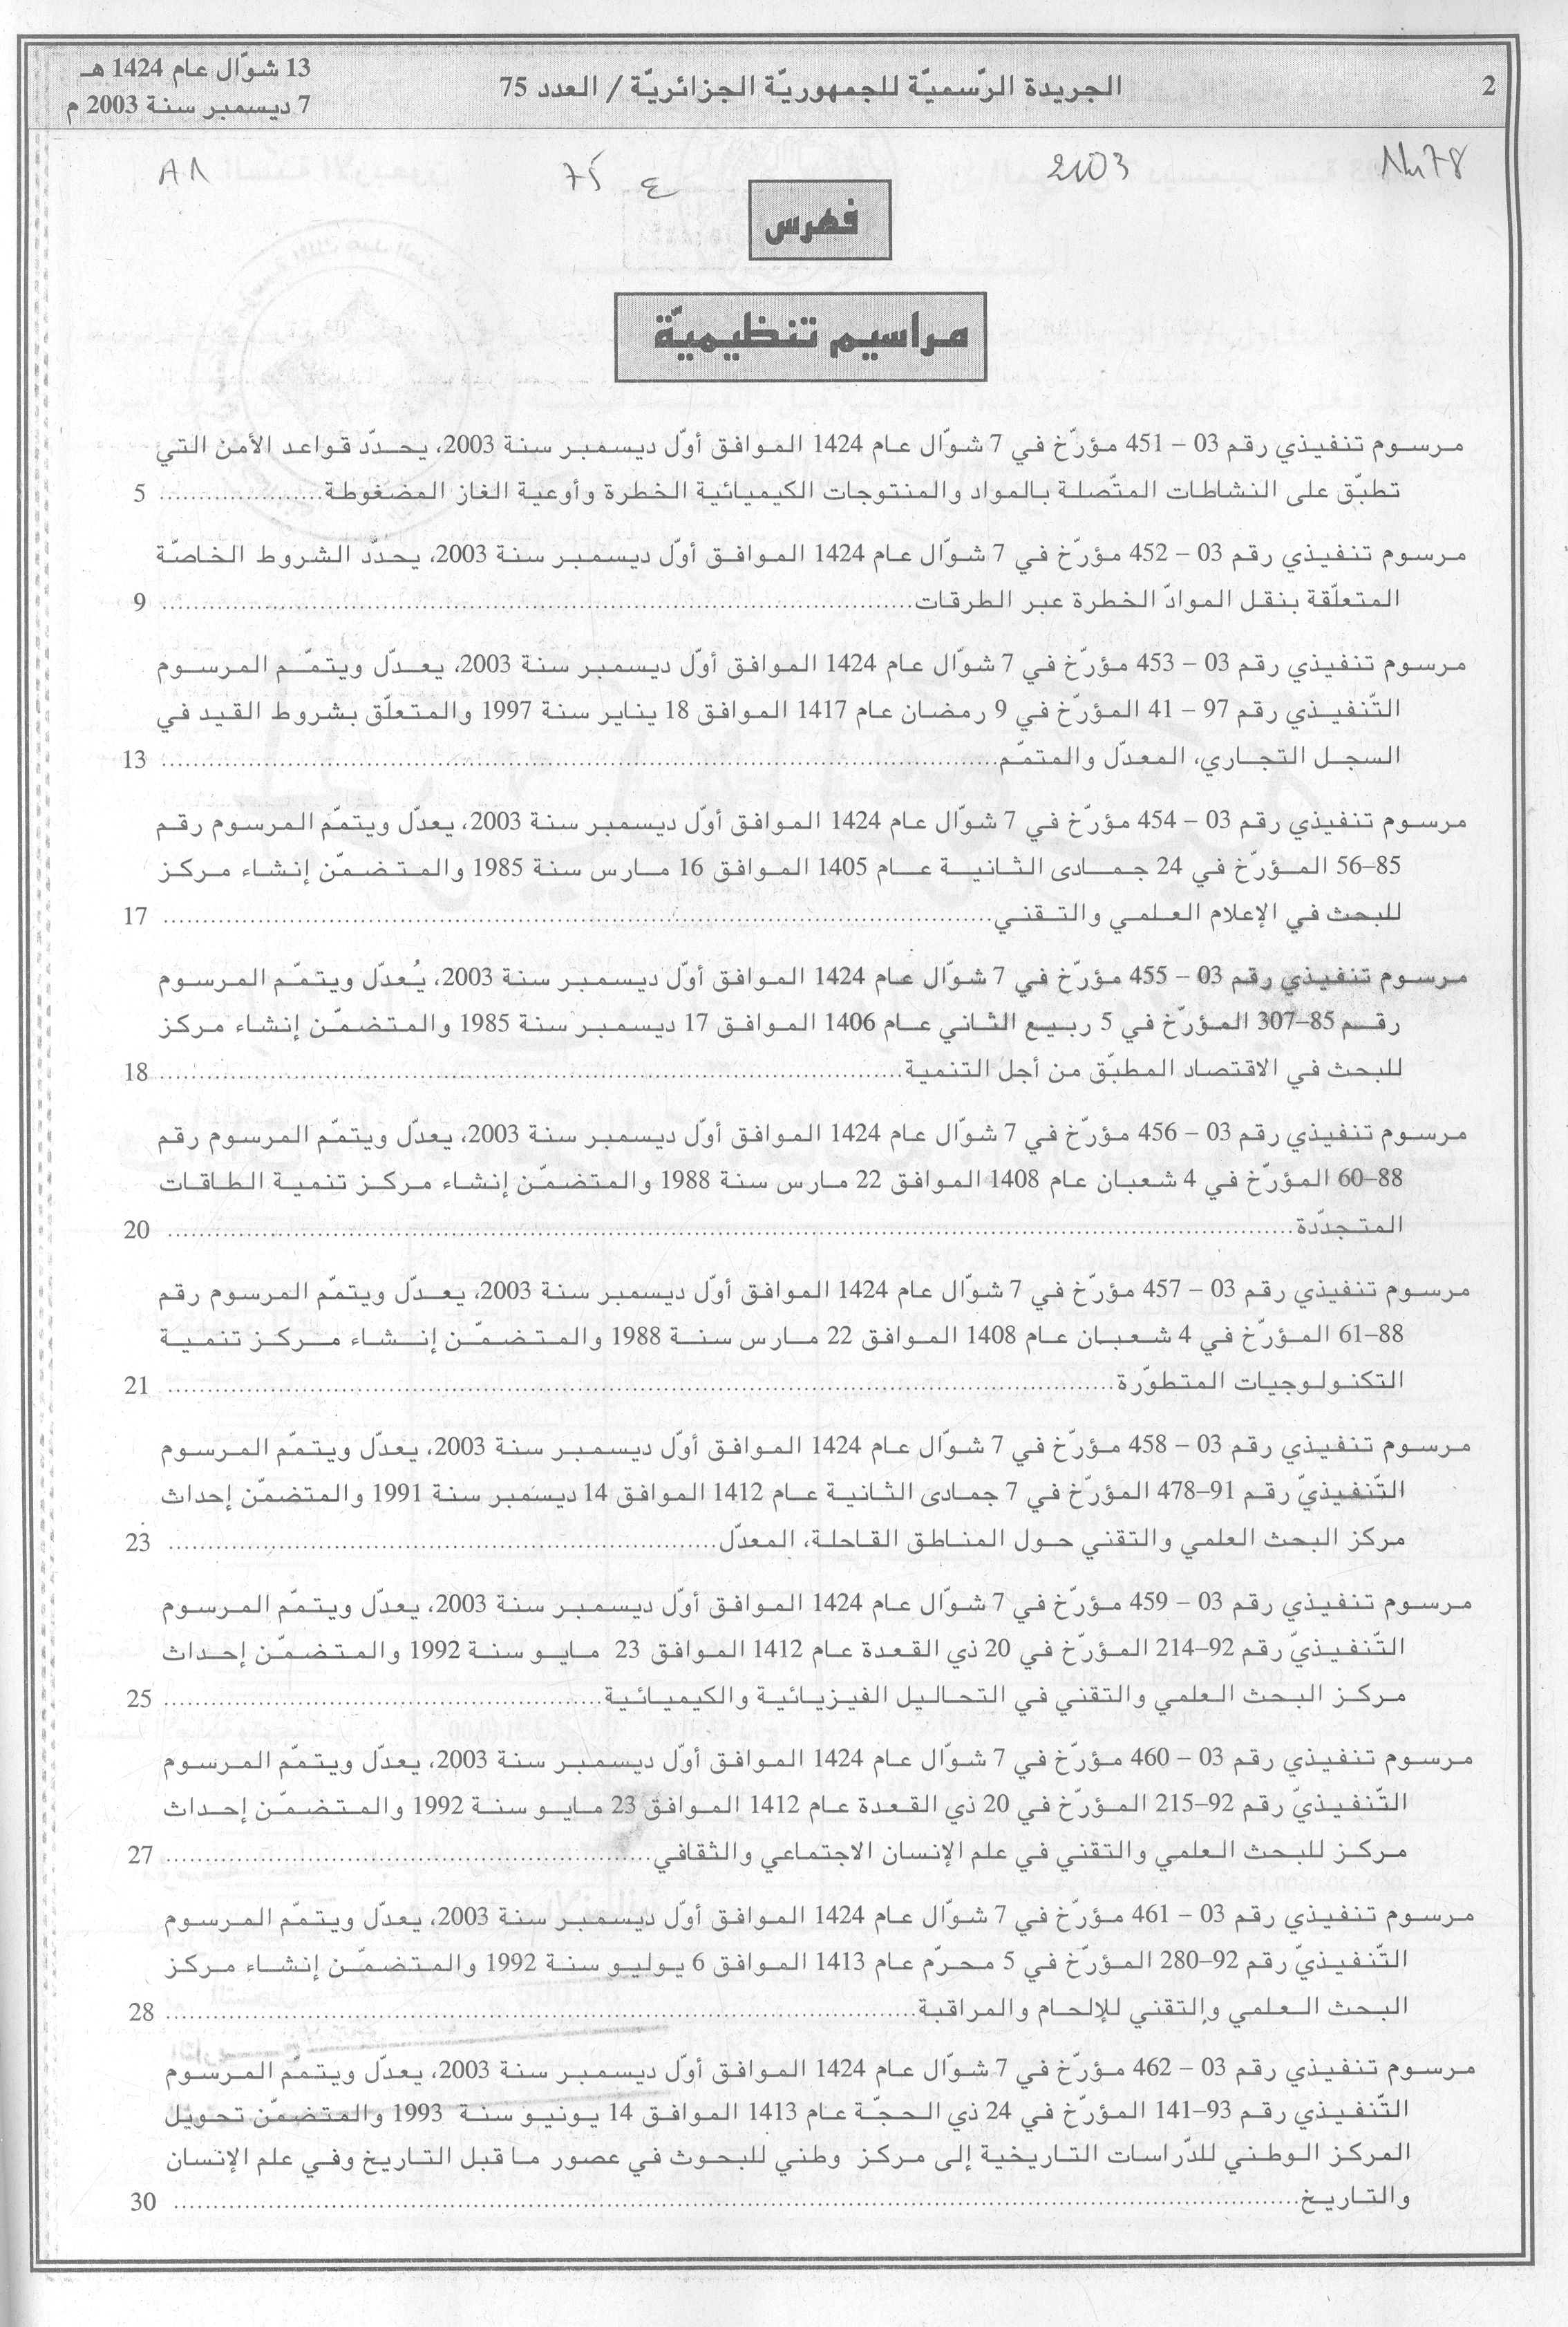 2
الجريدة الرّسميّة للجمهوريّة الجزائريّة / العدد 75
13 شوّال عام 1424 هـ
7 ديسمبر سنة 2003 م
2003
75 ع
A1
فهرس
مراسيم تنظيميّة
مرسوم تنفيذي رقم 03 – 451 مؤرّخ في 7 شوّال عام 1424 الموافق أوّل ديسمبر سنة 2003، يحدّد قواعد الأمن التي
تطبّق على النشاطات المتّصلة بالمواد والمنتوجات الكيميائية الخطرة وأوعية الغاز المضغوطة .................... 5
مرسوم تنفيذي رقم 03 – 452 مؤرّخ في 7 شوّال عام 1424 الموافق أوّل ديسمبر سنة 2003، يحدّد الشروط الخاصّة
المتعلّقة بنقل الموادّ الخطرة عبر الطرقات .................... 9
مرسوم تنفيذي رقم 03 – 453 مؤرّخ في 7 شوّال عام 1424 الموافق أوّل ديسمبر سنة 2003، يعدّل ويتمّم المرسوم
التّنفيذي رقم 97 – 41 المؤرّخ في 9 رمضان عام 1417 الموافق 18 يناير سنة 1997 والمتعلّق بشروط القيد في
السجل التجاري، المعدّل والمتمّم .................... 13
مرسوم تنفيذي رقم 03 – 454 مؤرّخ في 7 شوّال عام 1424 الموافق أوّل ديسمبر سنة 2003، يعدّل ويتمّم المرسوم رقم
85–56 المؤرّخ في 24 جمادى الثانية عام 1405 الموافق 16 مارس سنة 1985 والمتضمّن إنشاء مركز
للبحث في الإعلام العلمي والتقني .................... 17
مرسوم تنفيذي رقم 03 – 455 مؤرّخ في 7 شوّال عام 1424 الموافق أوّل ديسمبر سنة 2003، يُعدّل ويتمّم المرسوم
رقم 85–307 المؤرّخ في 5 ربيع الثاني عام 1406 الموافق 17 ديسمبر سنة 1985 والمتضمّن إنشاء مركز
للبحث في الاقتصاد المطبّق من أجل التنمية .................... 18
مرسوم تنفيذي رقم 03 – 456 مؤرّخ في 7 شوّال عام 1424 الموافق أوّل ديسمبر سنة 2003، يعدّل ويتمّم المرسوم رقم
88–60 المؤرّخ في 4 شعبان عام 1408 الموافق 22 مارس سنة 1988 والمتضمّن إنشاء مركز تنمية الطاقات
المتجدّدة .................... 20
مرسوم تنفيذي رقم 03 – 457 مؤرّخ في 7 شوّال عام 1424 الموافق أوّل ديسمبر سنة 2003، يعدّل ويتمّم المرسوم رقم
88–61 المؤرّخ في 4 شعبان عام 1408 الموافق 22 مارس سنة 1988 والمتضمّن إنشاء مركز تنمية
التكنولوجيات المتطوّرة .................... 21
مرسوم تنفيذي رقم 03 – 458 مؤرّخ في 7 شوّال عام 1424 الموافق أوّل ديسمبر سنة 2003، يعدّل ويتمّم المرسوم
التّنفيذيّ رقم 91–478 المؤرّخ في 7 جمادى الثانية عام 1412 الموافق 14 ديسمبر سنة 1991 والمتضمّن إحداث
مركز البحث العلمي والتقني حول المناطق القاحلة، المعدّل .................... 23
مرسوم تنفيذي رقم 03 – 459 مؤرّخ في 7 شوّال عام 1424 الموافق أوّل ديسمبر سنة 2003، يعدّل ويتمّم المرسوم
التّنفيذيّ رقم 92–214 المؤرّخ في 20 ذي القعدة عام 1412 الموافق 23 مايو سنة 1992 والمتضمّن إحداث
مركز البحث العلمي والتقني في التحاليل الفيزيائية والكيميائية .................... 25
مرسوم تنفيذي رقم 03 – 460 مؤرّخ في 7 شوّال عام 1424 الموافق أوّل ديسمبر سنة 2003، يعدّل ويتمّم المرسوم
التّنفيذيّ رقم 92–215 المؤرّخ في 20 ذي القعدة عام 1412 الموافق 23 مايو سنة 1992 والمتضمّن إحداث
مركز للبحث العلمي والتقني في علم الإنسان الاجتماعي والثقافي .................... 27
مرسوم تنفيذي رقم 03 – 461 مؤرّخ في 7 شوّال عام 1424 الموافق أوّل ديسمبر سنة 2003، يعدّل ويتمّم المرسوم
التّنفيذيّ رقم 92–280 المؤرّخ في 5 محرّم عام 1413 الموافق 6 يوليو سنة 1992 والمتضمّن إنشاء مركز
البحث العلمي والتقني للإلحام والمراقبة .................... 28
مرسوم تنفيذي رقم 03 – 462 مؤرّخ في 7 شوّال عام 1424 الموافق أوّل ديسمبر سنة 2003، يعدّل ويتمّم المرسوم
التّنفيذي رقم 93–141 المؤرّخ في 24 ذي الحجّة عام 1413 الموافق 14 يونيو سنة 1993 والمتضمّن تحويل
المركز الوطني للدّراسات التاريخية إلى مركز وطني للبحوث في عصور ما قبل التاريخ وفي علم الإنسان
والتاريخ .................... 30